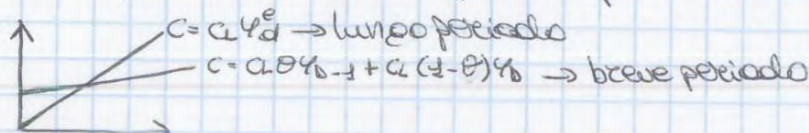 C = c₁Y_d^e → lungo periodo
C = c₁θY_{D-1} + c₁(1-θ)Y_D → breve periodo